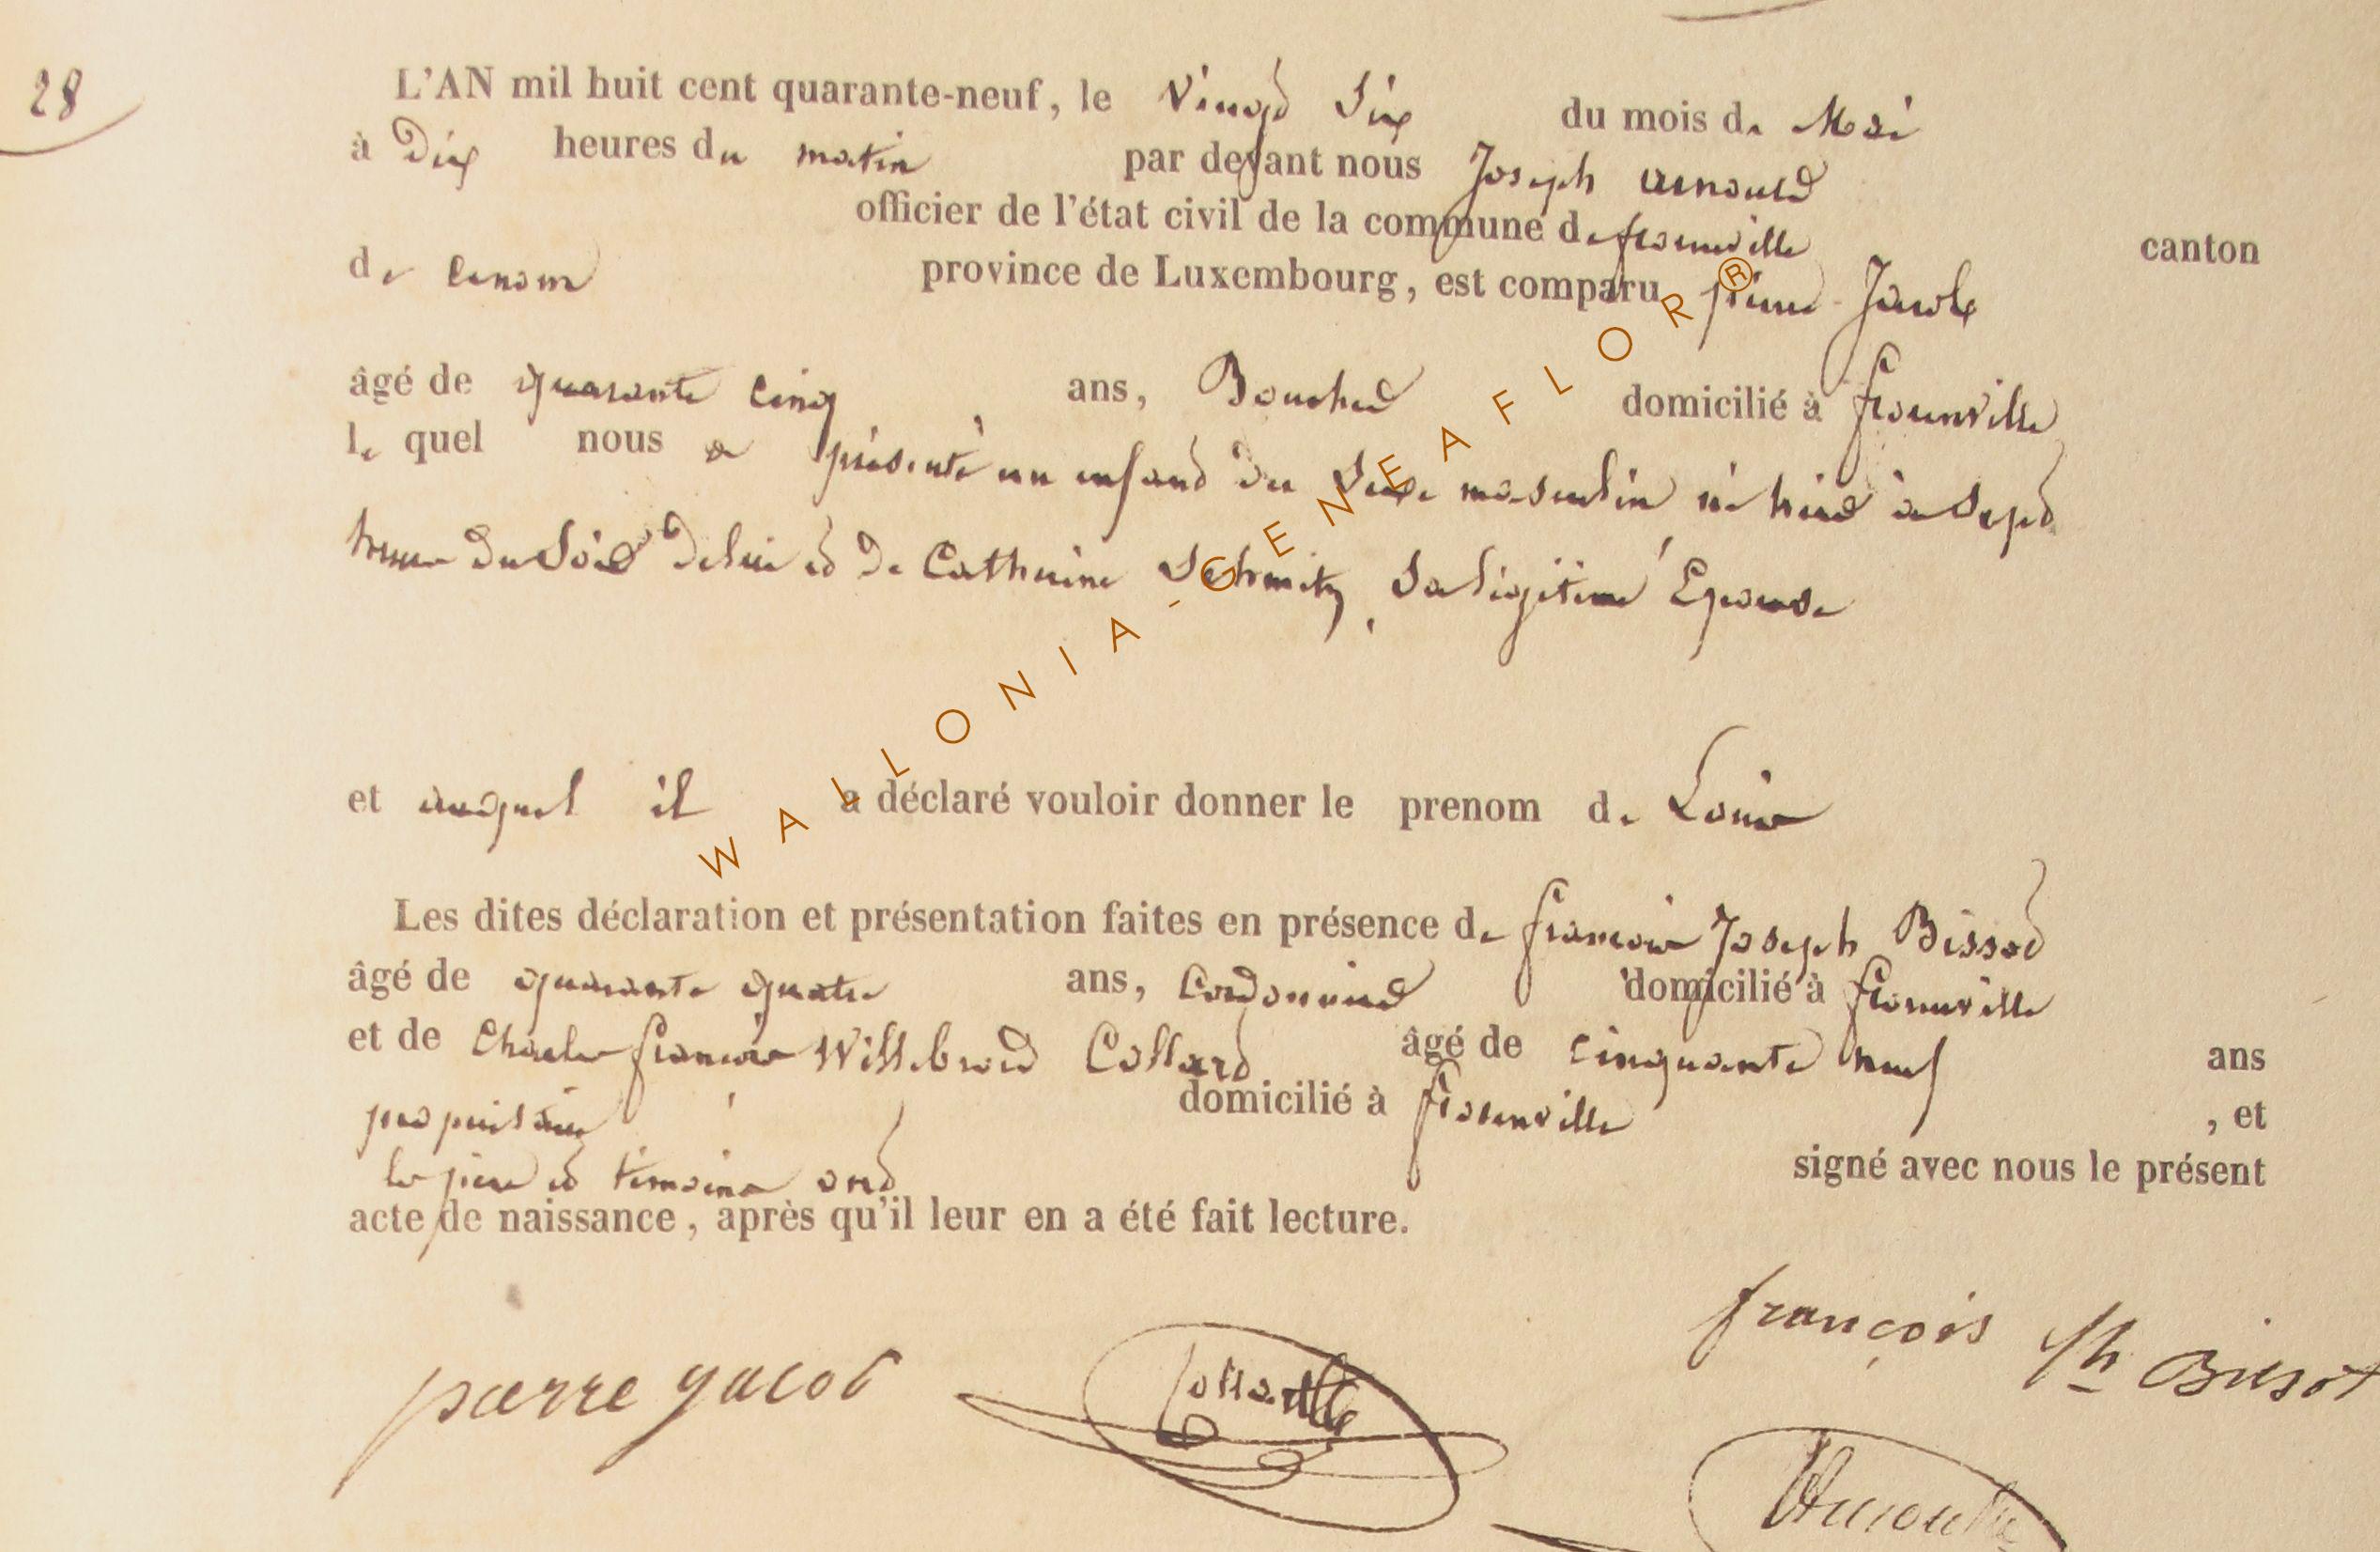 28
L'AN mil huit cent quarante-neuf, le Vingt Six du mois de Mai
à Dix heures du matin par devant nous Joseph arnould
officier de l'état civil de la commune de florenville canton
de province de Luxembourg, est comparu pierre Jacob
âgé de quarante cinq ans, Boucher domicilié à florenville
le quel nous a présenté un enfant du Sexe masculin né hier à Sept
heures du Soir de lui et de Catherine Schmitz, Sa légitime Epouse
et auquel il a déclaré vouloir donner le prenom de Louis
Les dites déclaration et présentation faites en présence de françois Joseph Bissot
âgé de quarante quatre ans, Cordonnier domicilié à florenville
et de Charles françois Willebrord Collard âgé de cinquante neuf ans
propriétaire domicilié à florenville , et
les père et témoins ont signé avec nous le présent
acte de naissance, après qu'il leur en a été fait lecture.
françois Jh Bissot
pierre jacob Collard
Arnould
WALLONIA-GENEAFLOR®